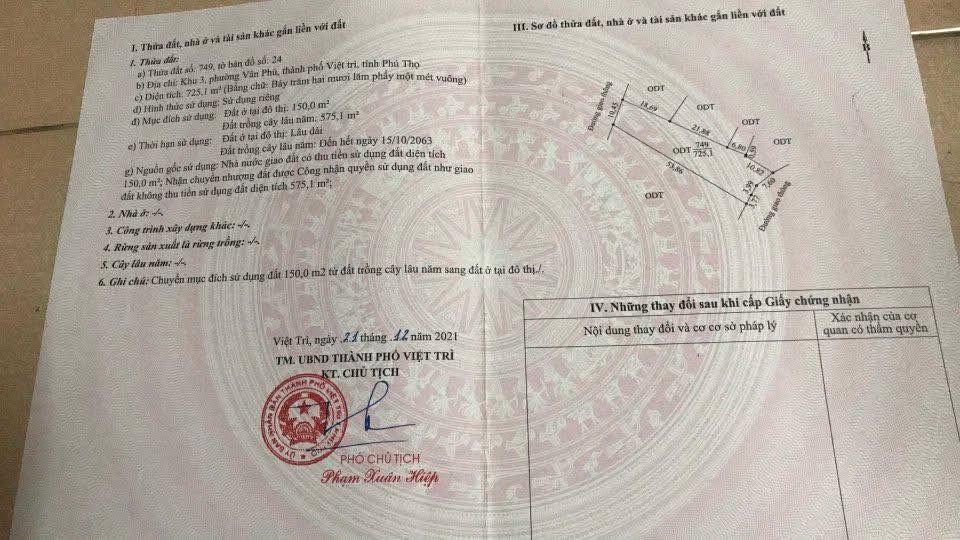 I. Thửa đất, nhà ở và tài sản khác gắn liền với đất
1. Thửa đất:
a) Thửa đất số: 749, tờ bản đồ số: 24
b) Địa chỉ: Khu 3, phường Vân Phú, thành phố Việt trì, tỉnh Phú Thọ
c) Diện tích: 725,1 m² (Bằng chữ: Bảy trăm hai mươi lăm phẩy một mét vuông)
d) Hình thức sử dụng: Sử dụng riêng
đ) Mục đích sử dụng: Đất ở tại đô thị: 150,0 m²
Đất trồng cây lâu năm: 575,1 m²
e) Thời hạn sử dụng: Đất ở tại đô thị: Lâu dài
Đất trồng cây lâu năm: Đến hết ngày 15/10/2063
g) Nguồn gốc sử dụng: Nhà nước giao đất có thu tiền sử dụng đất diện tích
150,0 m²; Nhận chuyển nhượng đất được Công nhận quyền sử dụng đất như giao
đất không thu tiền sử dụng đất diện tích 575,1 m²;
2. Nhà ở: -/-.
3. Công trình xây dựng khác: -/-.
4. Rừng sản xuất là rừng trồng: -/-.
5. Cây lâu năm: -/-.
6. Ghi chú: Chuyển mục đích sử dụng đất 150,0 m2 từ đất trồng cây lâu năm sang đất ở tại đô thị./.
Việt Trì, ngày 21 tháng 12 năm 2021
TM. UBND THÀNH PHỐ VIỆT TRÌ
KT. CHỦ TỊCH
ỦY BAN NHÂN DÂN THÀNH PHỐ VIỆT TRÌ
PHÓ CHỦ TỊCH
Phạm Xuân Hiệp
III. Sơ đồ thửa đất, nhà ở và tài sản khác gắn liền với đất
B
Đường giao thông
10,45
18,69
ODT
ODT
21,88
ODT
6,80
0,59
ODT
ODT
749
725,1
53,86
10,82
7,60
3,99
3,77
ODT
Đường giao thông
IV. Những thay đổi sau khi cấp Giấy chứng nhận
Nội dung thay đổi và cơ cơ sở pháp lý
Xác nhận của cơ
quan có thẩm quyền